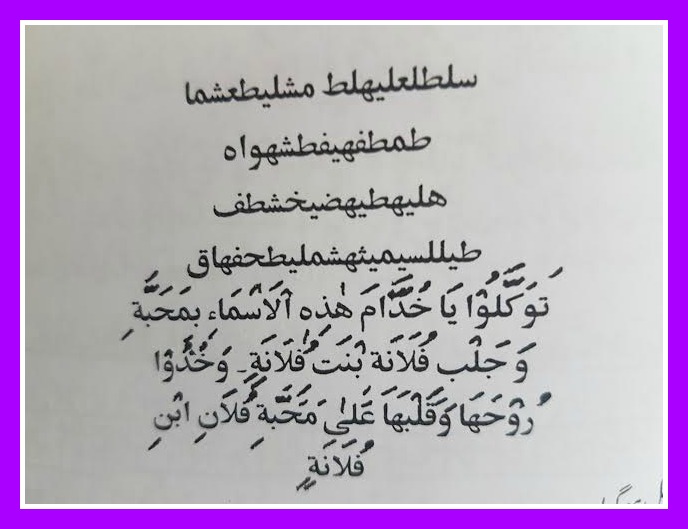 سلطلعليهلط مشليطعشما
طمطفهيفطشهواه
هليهطيهضيخشطف
طيللسيميثهشمليطحفهاق
تَوَكَّلُوْا يَا خُدَّامَ هٰذِهِ اْلَاسْمَاءِ بِمَحَبَّةِ
وَ جَلْبِ فُلَانَة بْنَت فُلَانَةٍ۔ وَخُذُوْا
رُوْحَهَا وَقَلْبَهَا عَلٰى مَحَبَّةِ فُلَانِ ابْنِ
فُلَانَةٍ